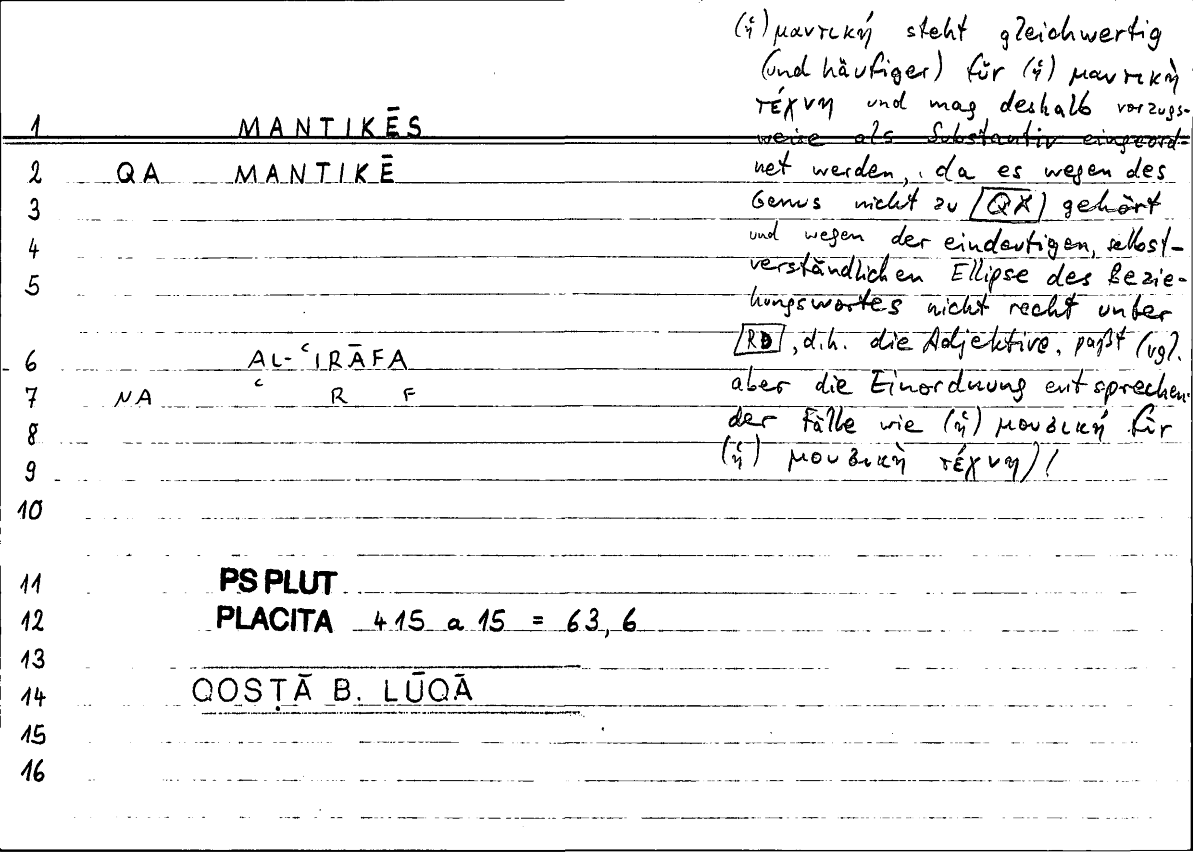 (ἡ) μαντική steht gleichwertig
(und häufiger) für (ἡ) μαντικὴ
τέχνη und mag deshalb vorzugs-
1 MANTIKĒS
weise als Substantiv eingeord-
2 QA MANTIKĒ
net werden, da es wegen des
3
Genus nicht zu QX gehört
4
und wegen der eindeutigen, selbst-
verständlichen Ellipse des Bezie-
5
hungswortes nicht recht unter
RD, d.h. die Adjektive, paßt (vgl.
6 AL-ʿIRĀFA
aber die Einordnung entsprechen-
7 NA ʿ R F
der Fälle wie (ἡ) μουσική für
8
(ἡ) μουσικὴ τέχνη)!
9
10
11 PS PLUT
12 PLACITA 415 a 15 = 63,6
13
14 QOSṬĀ B. LŪQĀ
15
16